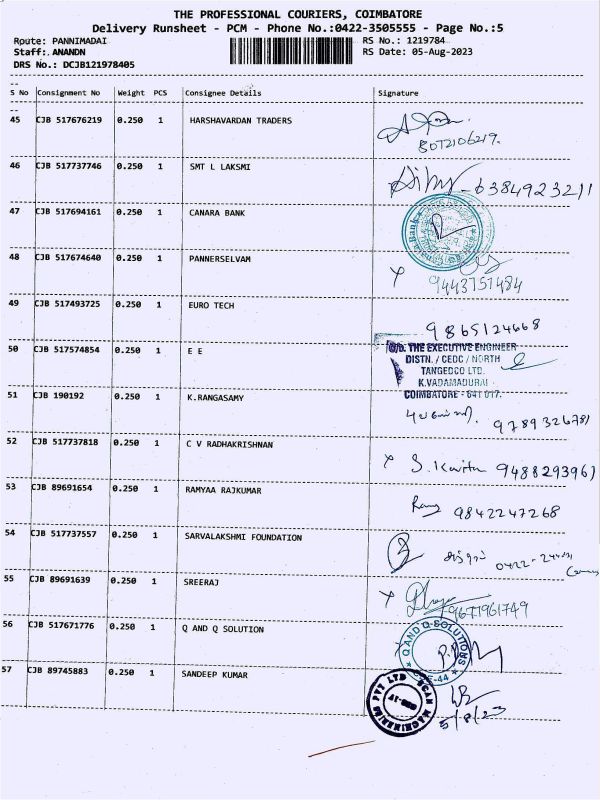 THE PROFESSIONAL COURIERS, COIMBATORE
Delivery Runsheet - PCM - Phone No.:0422-3505555 - Page No.:5
Route: PANNIMADAI
RS No.: 1219784
Staff: ANANDN
RS Date: 05-Aug-2023
DRS No.: DCJB121978405
S No Consignment No Weight PCS Consignee Details Signature
45 CJB 517676219 0.250 1 HARSHAVARDAN TRADERS
46 CJB 517737746 0.250 1 SMT L LAKSMI
6384923211
47 CJB 517694161 0.250 1 CANARA BANK
Canara Bank
48 CJB 517674640 0.250 1 PANNERSELVAM
9443751484
49 CJB 517493725 0.250 1 EURO TECH
9865124668
50 CJB 517574854 0.250 1 E E
O/o. THE EXECUTIVE ENGINEER
DISTN. / CEDC / NORTH
TANGEDCO LTD.
K.VADAMADURAI
COIMBATORE - 641 017.
51 CJB 190192 0.250 1 K.RANGASAMY
9789326781
52 CJB 517737818 0.250 1 C V RADHAKRISHNAN
S. Kavitha 9488293961
53 CJB 89691654 0.250 1 RAMYAA RAJKUMAR
9842247268
54 CJB 517737557 0.250 1 SARVALAKSHMI FOUNDATION
55 CJB 89691639 0.250 1 SREERAJ
56 CJB 517671776 0.250 1 Q AND Q SOLUTION
Q AND Q SOLUTIONS
57 CJB 89745883 0.250 1 SANDEEP KUMAR
5/8/23